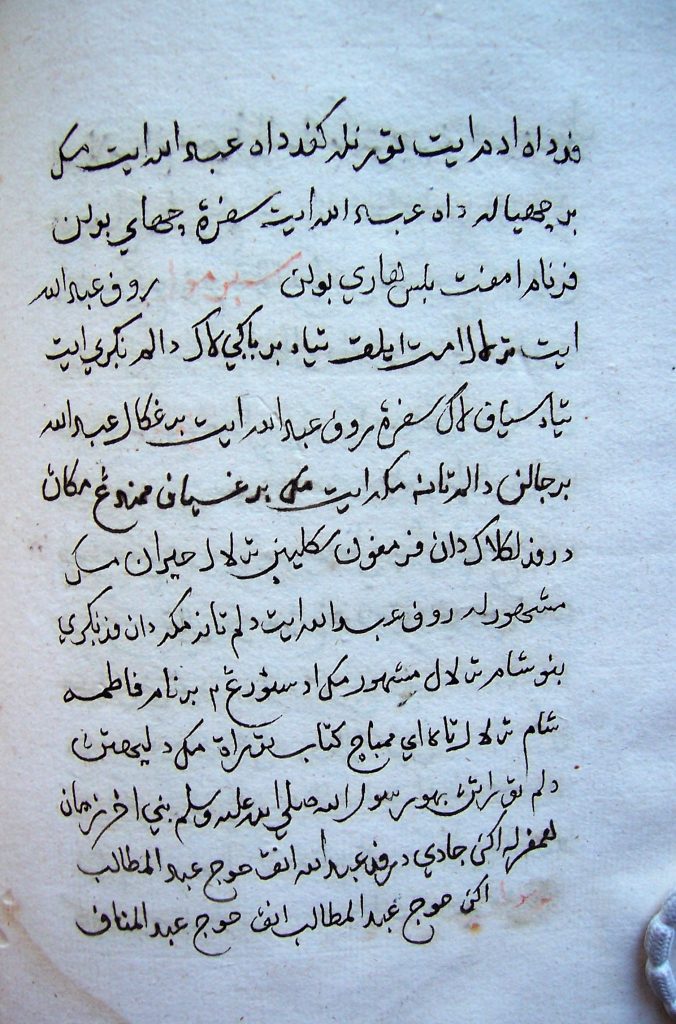 فد داه ادم ايت تور نله كفد داه عبد الله ايت مك
بر چهياله داه عبد الله ايت سفرة چهاي بولن
فرنام امفت بلس هاري بولن روف عبد الله
ايت ترلالو امت ايلوق تياد برباكي لاک دالم نكري ايت
تياد سياف لاک سفرة روف عبد الله ايت برغكال عبد الله
برجالن دالم تانه مكه ايت مك برغسياف ممندغ مكان
درفد لكلاک دان فرمفون سكلين ترلالو حيران مك
مشهورله روف عبد الله ايت دلم تانه مكه دان فد نكري
بنو شام ترلالو مشهور مك اد سئورغ ٢ برنام فاطمه
شام ترلالو تاهو اي ممباچ كتاب توراة مك دليهتن
دلم توراة بهو رسول الله صلي الله عليه وسلم نبي اخر زمان
اكن جادي درفد عبد الله انق هوج عبد المطالب
اكن هوج عبد المطالب انق هوج عبد المناف